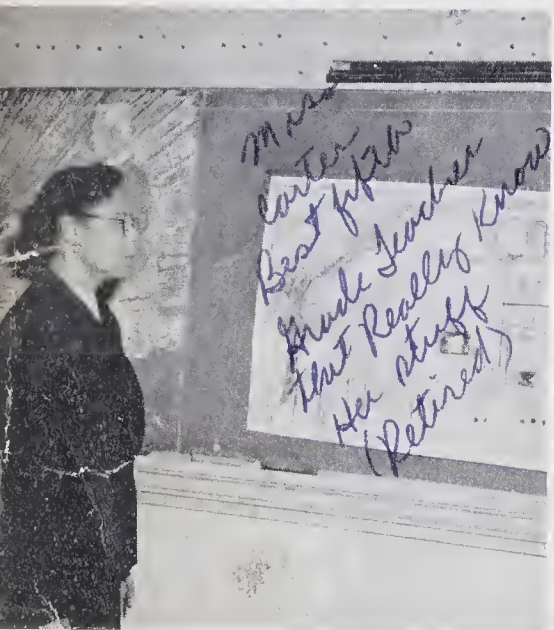 Mrss
Carter
Best fifth
Grade Teacher
that Really Know
Her stuff
(Retired)